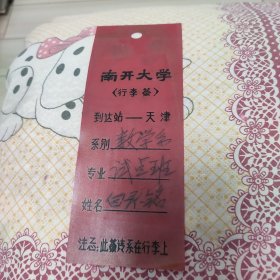 南开大学
（行李签）
到达站——天津
系别 数学系
专业 试点班
姓名
注意：此签请系在行李上